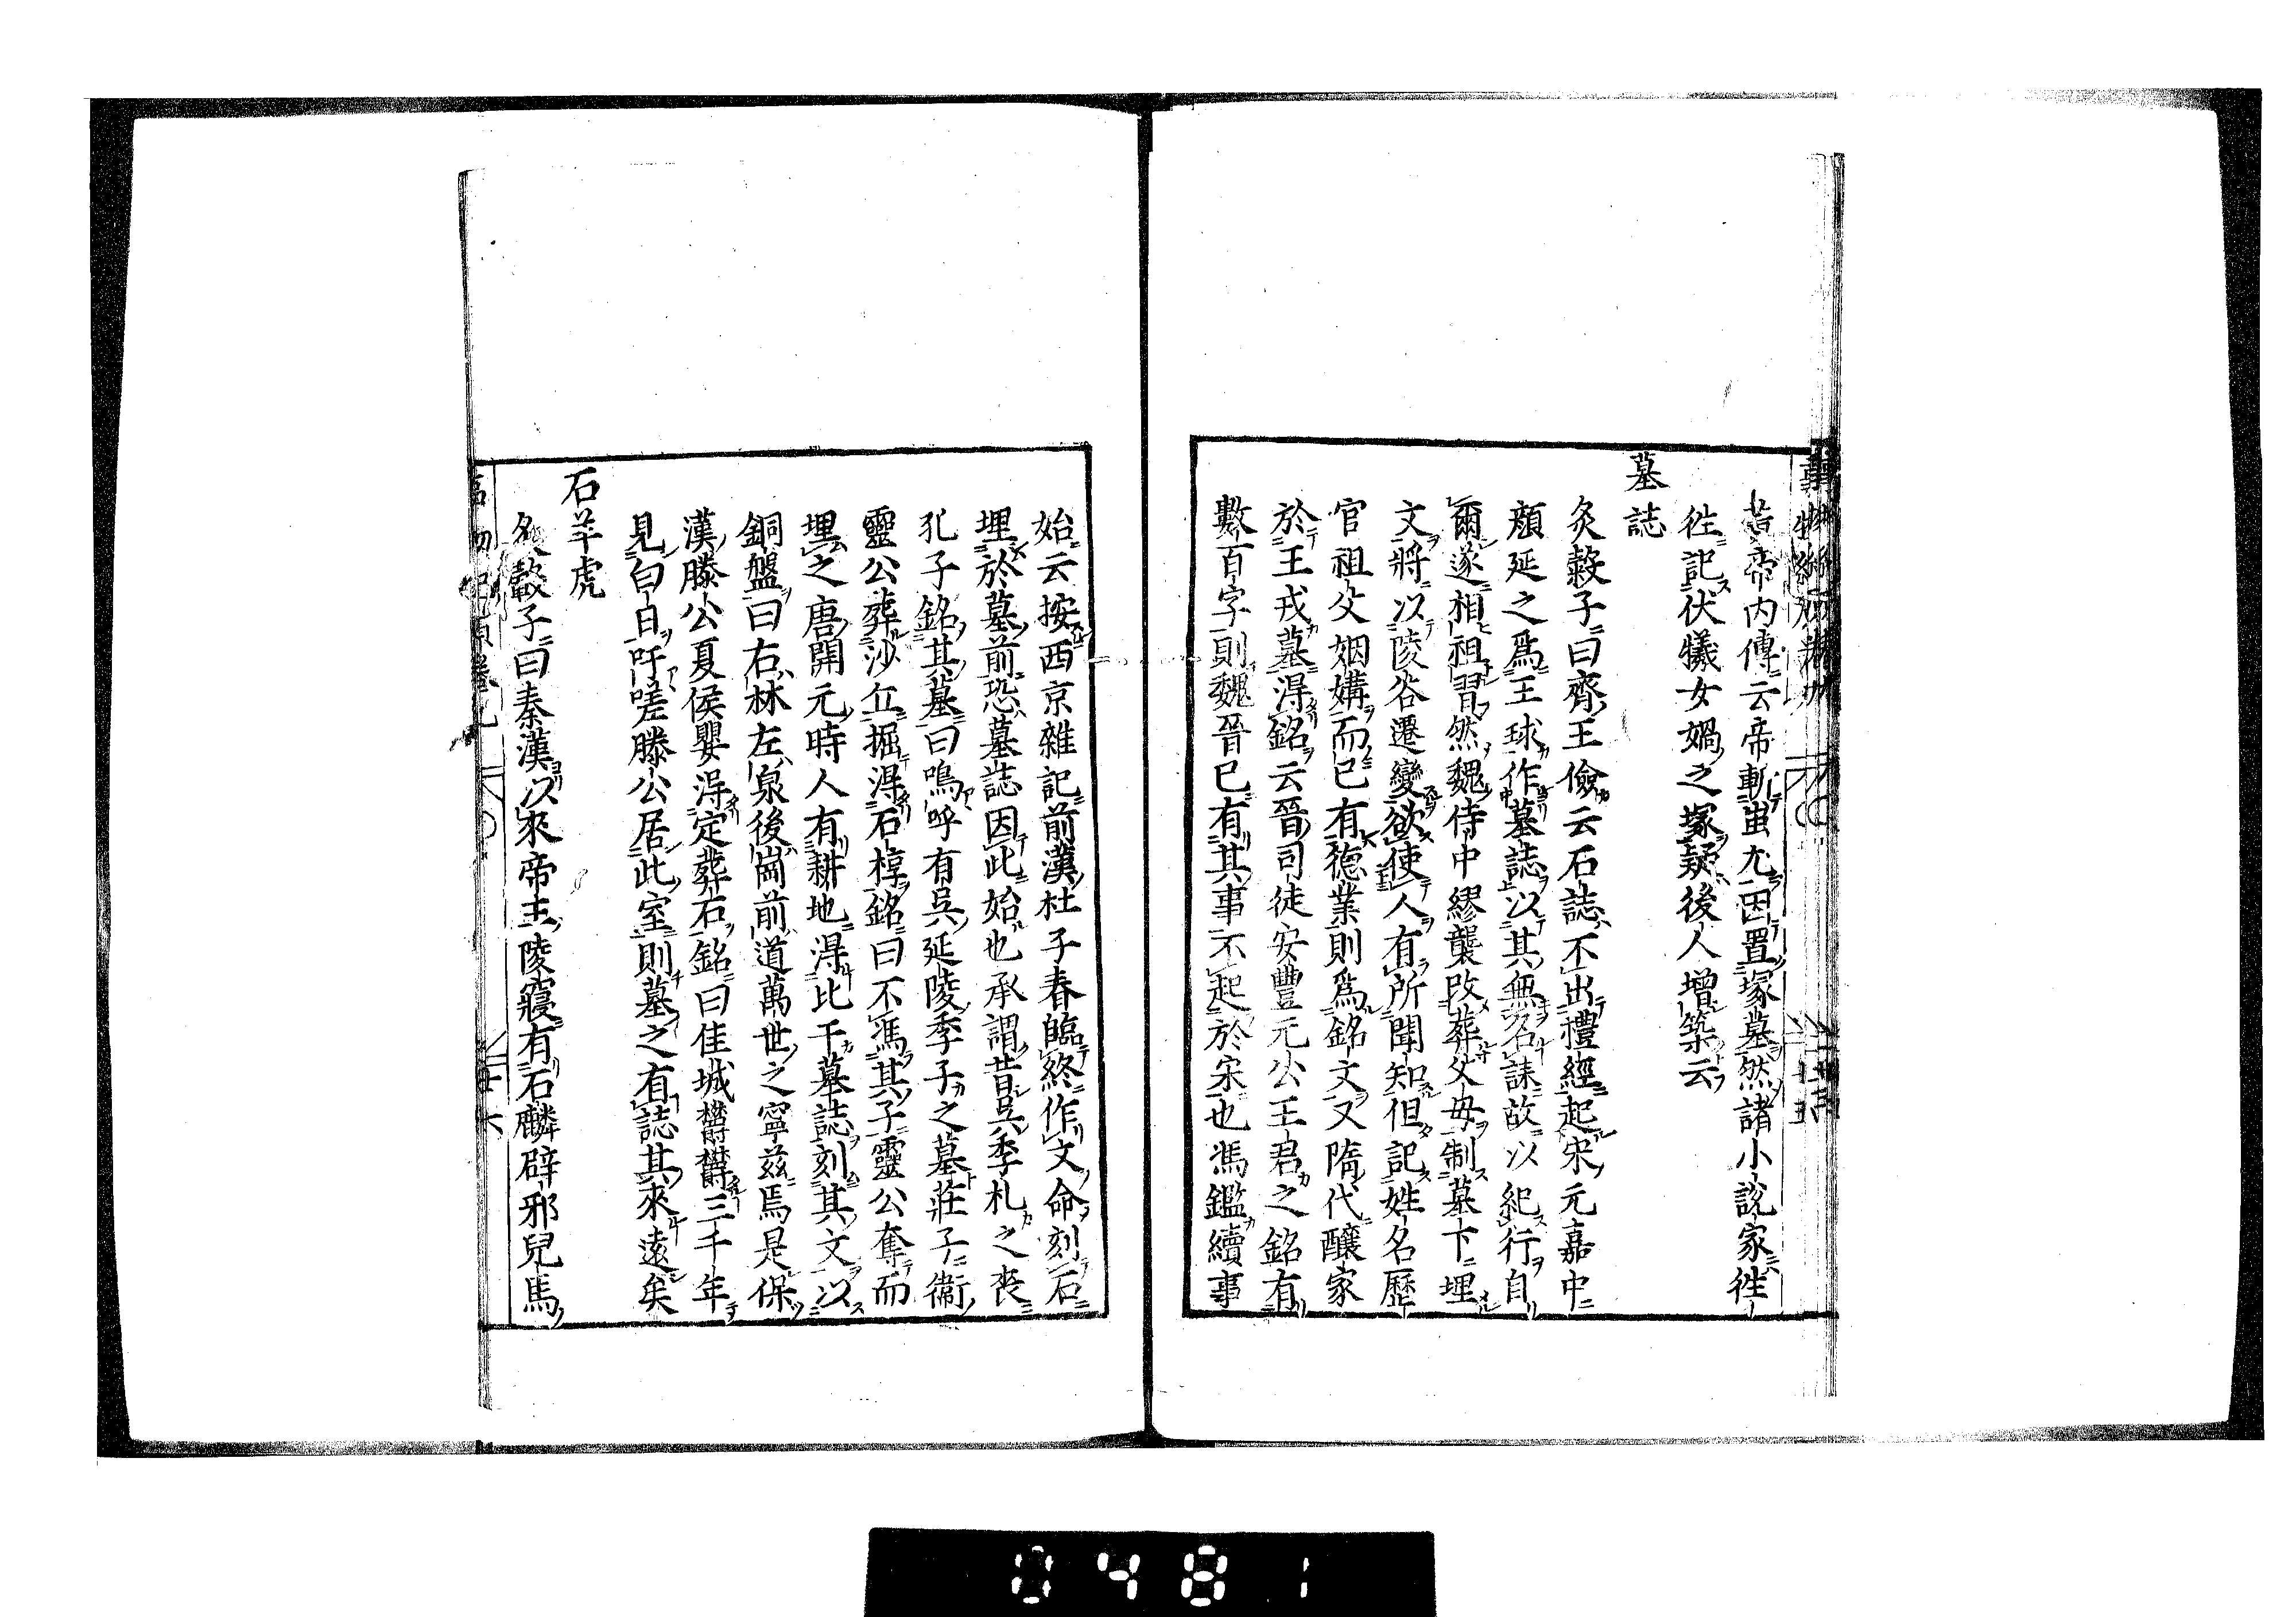 黄帝内傳云帝斬蚩尤因置塚墓然諸小說家徃
徃記伏犧女媧之塚疑後人增築云
墓誌
炙轂子曰齊王儉云石誌不出禮經起宋元嘉中
顔延之爲王球作墓誌以其無名誄故以紀行自
爾遂相祖習然魏侍中繆襲改葬父母制墓下埋
文將以陵谷遷變欲使人有所聞知但記姓名歷
官祖父姻媾而已有德業則爲銘文又隋代釀家
於王戎墓得銘云晉司徒安豐元公王君之銘有
數百字則魏晉已有其事不起於宋也馮鑑續事
始云按西京雜記前漢杜子春臨終作文命刻石
埋於墓前恐墓誌因此始也承謂昔吳季札之喪
孔子銘其墓曰嗚呼有吳延陵季子之墓莊子衞
靈公葬沙丘掘得石椁銘曰不馮其子靈公奪而
埋之唐開元時人有耕地得比干墓誌刻其文以
銅盤曰右林左泉後崗前道萬世之寧茲焉是保
漢滕公夏侯嬰得定葬石銘曰佳城欝欝三千年
見白日吁嗟滕公居此室則墓之有誌其來遠矣
石羊虎
炙轂子曰秦漢以來帝王陵寢有石麟辟邪兒馬
0481